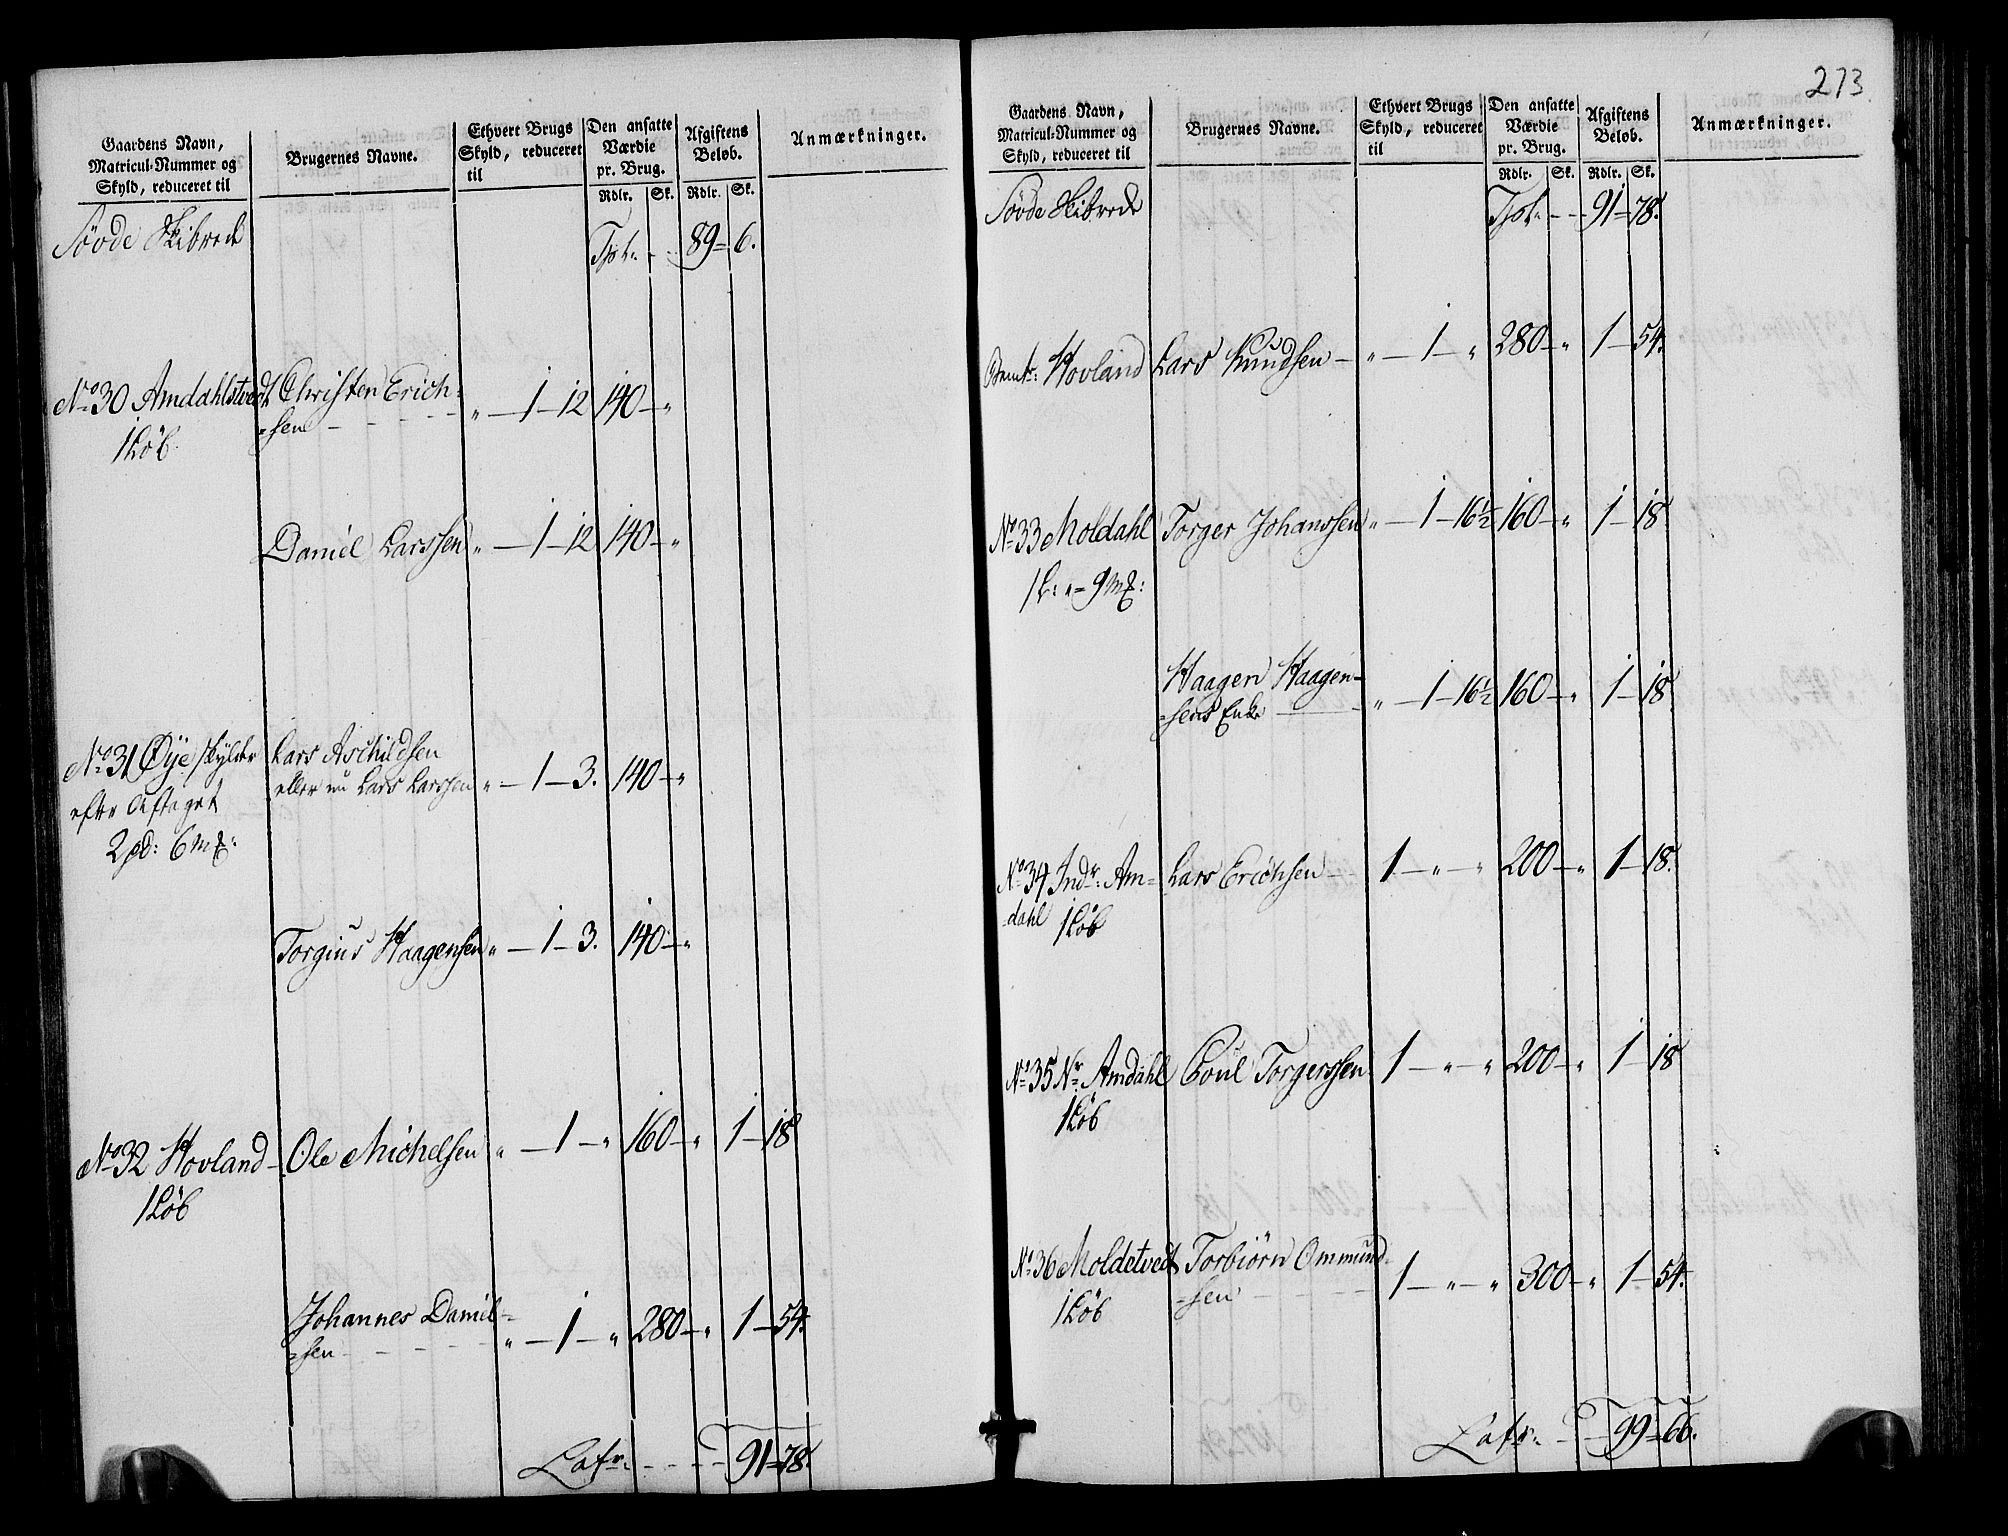 Gaardens Navn, Matricul-Nummer og Skyld, reduceret til
Brugernes Navne.
Ethvert Brugs Skyld, reduceret til
Den ansatte Værdie pr. Brug.
Afgiftens Beløb.
Anmærkninger.
Rdlr. Sk. Rdlr. Sk.
Søvde Skibrede Tpt: - - 89 = 6.
No 30 Amdahlstvedt Christen Erich= " — 1 — 12 140 — "
1 Løb =sen
Daniel Larssen " — 1 — 12 140 — "
No 31 Øye skylder Lars Aschildsen
efter Aftaget eller nu Lars Larssen " — 1 — 3. 140 — "
2 pd: 6 mk:
Torgius Haagensen " — 1 — 3. 140 — "
No 32 Hovland Ole Michelsen " — 1 — " 160 — " 1 — 18
1 Løb
Johannes Daniel=
=sen " — 1 — " 280 — " 1 — 54.
Latr: - - - 91 = 78.
273.
Gaardens Navn, Matricul-Nummer og Skyld, reduceret til
Brugernes Navne.
Ethvert Brugs Skyld, reduceret til
Den ansatte Værdie pr. Brug.
Afgiftens Beløb.
Anmærkninger.
Rdlr. Sk. Rdlr. Sk.
Søvde Skibrede Tpt: - - 91 = 78.
Hovland Lars Knudsen — " — 1 — " 280 — " 1 — 54.
No 33 Moldahl Torger Johanssen " — 1 — 16½ 160 — " 1 — 18
1 L: " = 9 mk:
Haagen Haagen=
=sens Enke " — 1 — 16½ 160 — " 1 — 18
No 34 Indr: Am= Lars Erichsen 1 — " — " 200 — " 1 — 18.
=dahl 1 Løb
No 35 Nr. Amdahl Poul Torgerssen 1 — " — " 200 — " 1 — 18
1 Løb
No 36 Moldetvedt Torbiørn Ommund=
1 Løb =sen 1 — " — " 300 — " 1 — 54.
Latr: - - 99 = 66.